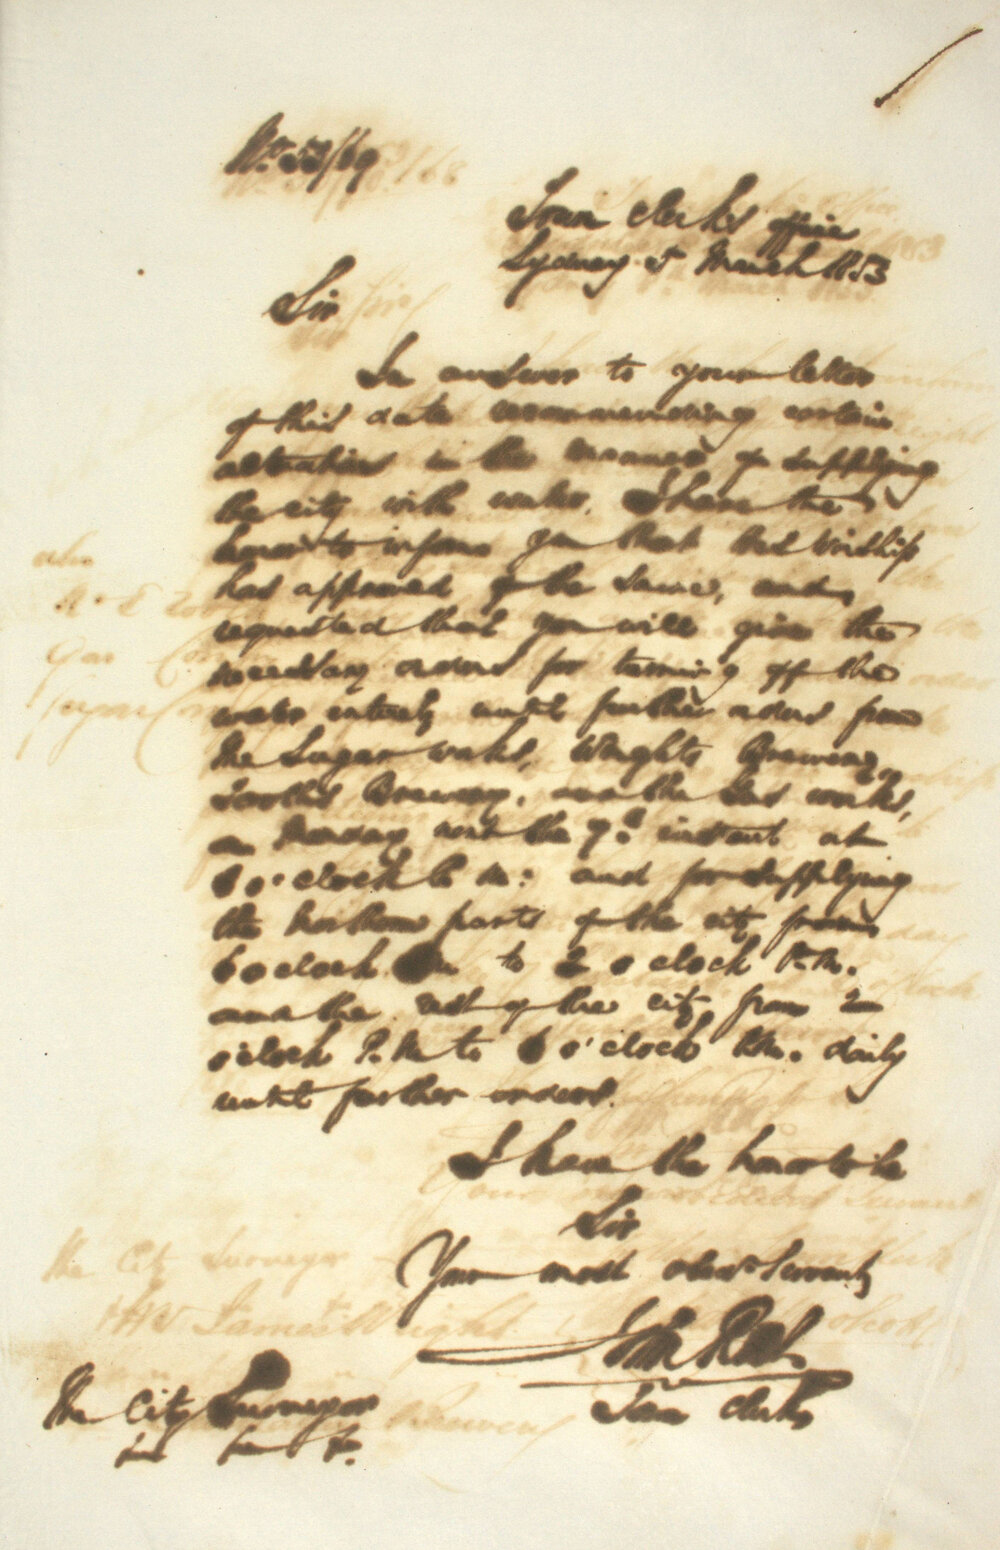 No. 53/69
Town Clerk's office
Sydney 5 March 1853
Sir
In answer to your letter
of this date recommending certain
alterations in the manner of supplying
the city with water. I have the
honor to inform you that his Worship
has approved of the same, and
requested that you will give the
necessary orders for turning off the
water entirely until further orders from
the Sugar works, Wrights Brewery,
Tooth's Brewery, and the Gas works,
on Monday next the 7th instant at
6 o'clock P.M: and for supplying
the northern parts of the city from
6 o clock to 2 o clock P.M.
and the rest of the city from 2
o'clock P.M to 6 o'clock daily
until further orders.
I have the honor to be
Sir
Your most obedt Servant
Town Clerk
The City Surveyor